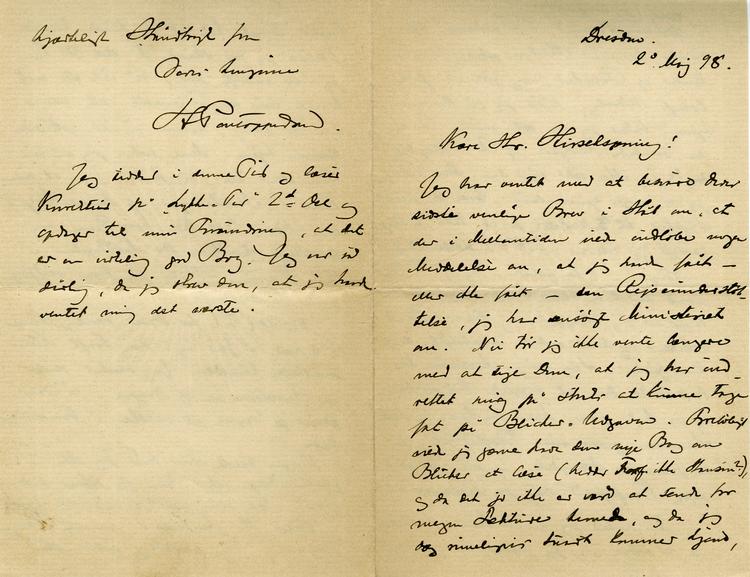 hjærteligt Håndtryk fra
Deres hengivne
H Pontoppidan.
Jeg sidder i denne Tid og læser
Korrektur på "Lykke-Per" 2d Del og
opdager til min Forundring, at det
er en virkelig god Bog. Jeg var så
dårlig, da jeg skrev den, at jeg havde
ventet mig det værste.
Dresden.
20 Maj 98.
Kære Hr. Hirschsprung!
Jeg har ventet med at besvare Deres
sidste venlige Brev i Håb om, at
der i Mellemtiden vilde indløbe nogen
Meddelelse om, at jeg havde fået —
eller ikke fået — den Rejseunderstøt-
telse, jeg har ansøgt Ministeriet
om. Nu tør jeg ikke vente længere
med at sige Dem, at jeg har ind-
rettet mig på straks at kunne tage
fat på Blicher-Udgaven. Foreløbig
vilde jeg gerne have den nye Bog om
Blicher at læse (hedder Forf. ikke Hansen?),
og da det jo ikke er værd at sende for
megen Lekture herned, og da jeg
dog rimeligvis snart kommer hjem,